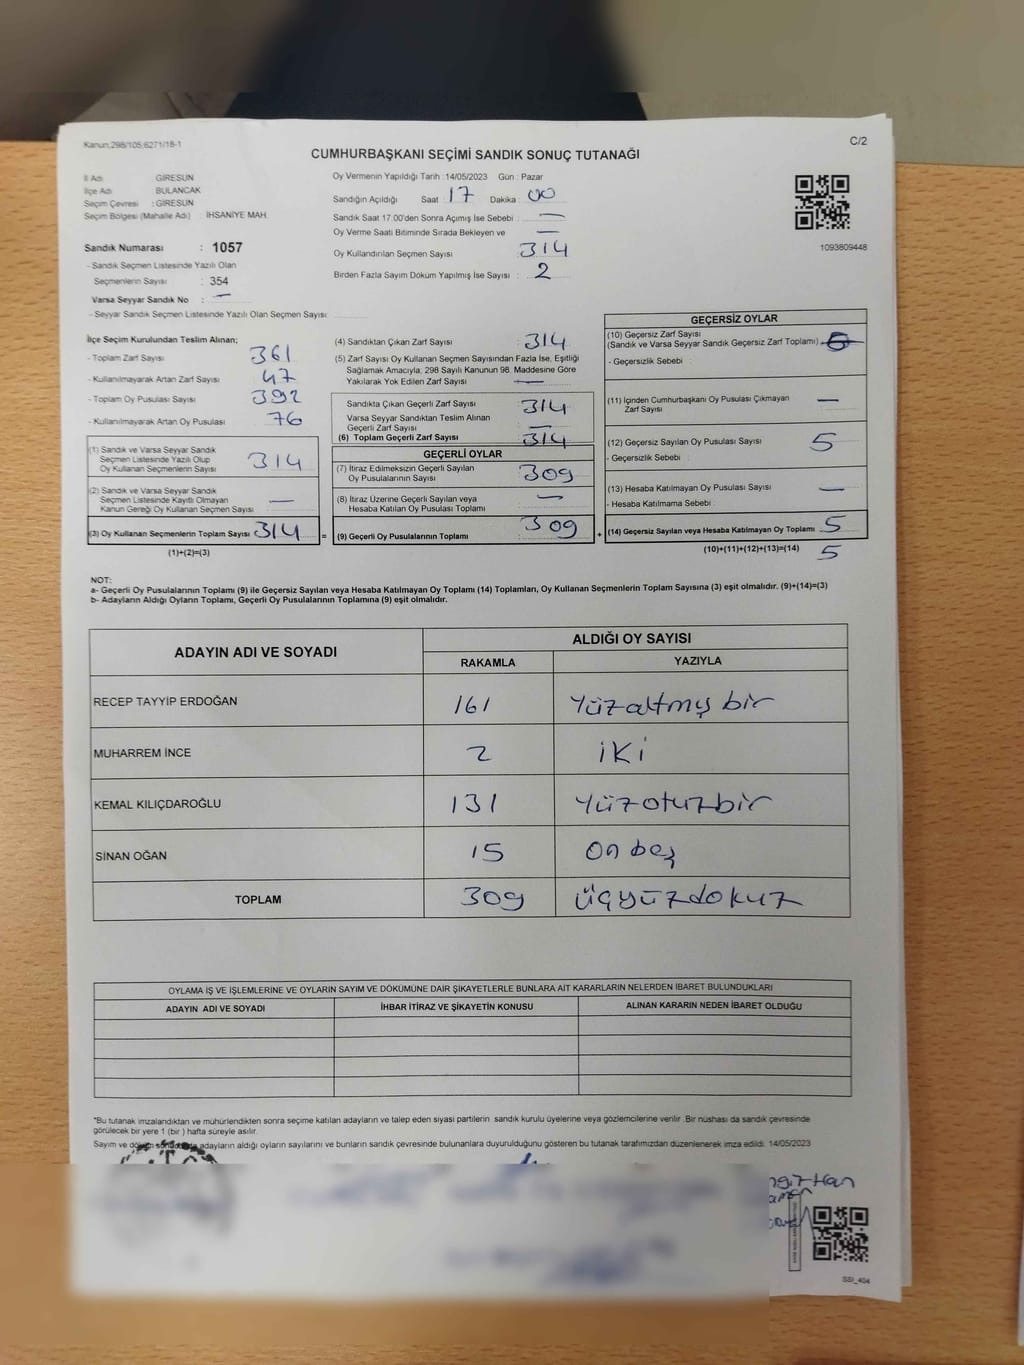 Kanun;298/105;6271/18-1
C/2
CUMHURBAŞKANI SEÇİMİ SANDIK SONUÇ TUTANAĞI
İl Adı GİRESUN
İlçe Adı BULANCAK
Seçim Çevresi : GİRESUN
Seçim Bölgesi (Mahalle Adı) İHSANİYE MAH.
Sandık Numarası : 1057
- Sandık Seçmen Listesinde Yazılı Olan
Seçmenlerin Sayısı : 354
Varsa Seyyar Sandık No : —
- Seyyar Sandık Seçmen Listesinde Yazılı Olan Seçmen Sayısı:
Oy Vermenin Yapıldığı Tarih :14/05/2023 Gün : Pazar
Sandığın Açıldığı Saat 17 Dakika 00
Sandık Saat 17.00'den Sonra Açımış İse Sebebi : —
Oy Verme Saati Bitiminde Sırada Bekleyen ve —
Oy Kullandırılan Seçmen Sayısı : 314
Birden Fazla Sayım Döküm Yapılmış İse Sayısı : 2
1093809448
İlçe Seçim Kurulundan Teslim Alınan;
- Toplam Zarf Sayısı 361
- Kullanılmayarak Artan Zarf Sayısı 47
- Toplam Oy Pusulası Sayısı 392
- Kullanılmayarak Artan Oy Pusulası 76
(1) Sandık ve Varsa Seyyar Sandık
Seçmen Listesinde Yazılı Olup
Oy Kullanan Seçmenlerin Sayısı 314
(2) Sandık ve Varsa Seyyar Sandık
Seçmen Listesinde Kayıtlı Olmayan
Kanun Gereği Oy Kullanan Seçmen Sayısı —
(3) Oy Kullanan Seçmenlerin Toplam Sayısı 314 =
(1)+(2)=(3)
(4) Sandıktan Çıkan Zarf Sayısı : 314
(5) Zarf Sayısı Oy Kullanan Seçmen Sayısından Fazla İse, Eşitliği
Sağlamak Amacıyla, 298 Sayılı Kanunun 98. Maddesine Göre
Yakılarak Yok Edilen Zarf Sayısı : —
Sandıkta Çıkan Geçerli Zarf Sayısı : 314
Varsa Seyyar Sandıktan Teslim Alınan
Geçerli Zarf Sayısı : —
(6) Toplam Geçerli Zarf Sayısı : 314
GEÇERLİ OYLAR
(7) İtiraz Edilmeksizin Geçerli Sayılan
Oy Pusulalarının Sayısı : 309
(8) İtiraz Üzerine Geçerli Sayılan veya
Hesaba Katılan Oy Pusulası Toplamı : —
(9) Geçerli Oy Pusulalarının Toplamı : 309 +
GEÇERSİZ OYLAR
(10) Geçersiz Zarf Sayısı
(Sandık ve Varsa Seyyar Sandık Geçersiz Zarf Toplamı)
- Geçersizlik Sebebi :
(11) İçinden Cumhurbaşkanı Oy Pusulası Çıkmayan
Zarf Sayısı —
(12) Geçersiz Sayılan Oy Pusulası Sayısı 5
- Geçersizlik Sebebi :
(13) Hesaba Katılmayan Oy Pusulası Sayısı —
- Hesaba Katılmama Sebebi :
(14) Geçersiz Sayılan veya Hesaba Katılmayan Oy Toplamı 5
(10)+(11)+(12)+(13)=(14) 5
NOT:
a- Geçerli Oy Pusulalarının Toplamı (9) ile Geçersiz Sayılan veya Hesaba Katılmayan Oy Toplamı (14) Toplamları, Oy Kullanan Seçmenlerin Toplam Sayısına (3) eşit olmalıdır. (9)+(14)=(3)
b- Adayların Aldığı Oyların Toplamı, Geçerli Oy Pusulalarının Toplamına (9) eşit olmalıdır.
ADAYIN ADI VE SOYADI ALDIĞI OY SAYISI
RAKAMLA YAZIYLA
RECEP TAYYİP ERDOĞAN 161 Yüzaltmış bir
MUHARREM İNCE 2 iki
KEMAL KILIÇDAROĞLU 131 Yüzotuzbir
SİNAN OĞAN 15 on beş
TOPLAM 309 üçyüzdokuz
OYLAMA İŞ VE İŞLEMLERİNE VE OYLARIN SAYIM VE DÖKÜMÜNE DAİR ŞİKAYETLERLE BUNLARA AİT KARARLARIN NELERDEN İBARET BULUNDUKLARI
ADAYIN ADI VE SOYADI İHBAR İTİRAZ VE ŞİKAYETİN KONUSU ALINAN KARARIN NEDEN İBARET OLDUĞU
*Bu tutanak imzalandıktan ve mühürlendikten sonra seçime katılan adayların ve talep eden siyasi partilerin sandık kurulu üyelerine veya gözlemcilerine verilir .Bir nüshası da sandık çevresinde
görülecek bir yere 1 (bir ) hafta süreyle asılır.
Sayım ve döküm sonucunda adayların aldığı oyların sayılarını ve bunların sandık çevresinde bulunanlara duyurulduğunu gösteren bu tutanak tarafımızdan düzenlenerek imza edildi. 14/05/2023
SSI_404